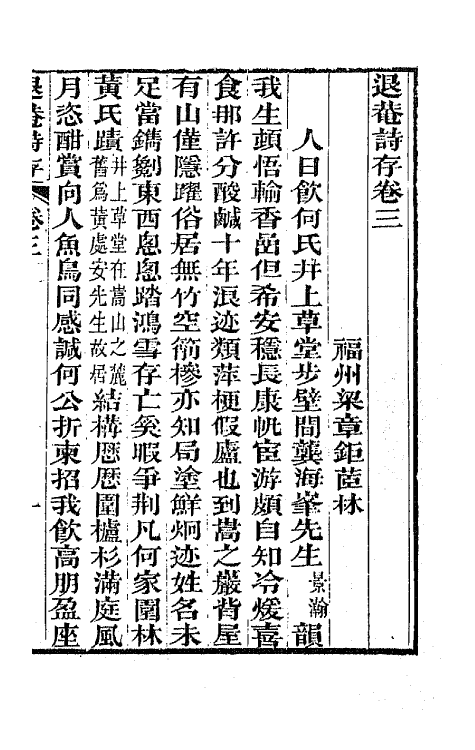 退菴詩存卷三
福州梁章鉅茝林
人日飲何氏井上草堂步壁間龔海峯先生景瀚韻
我生頓悟輸香嵒但希安穩長康帆宦游頗自知冷煖喜
食那許分酸鹹十年浪迹類萍梗假廬也到嵩之巖背屋
有山僅隱躍俗居無竹空箾槮亦知局塗鮮炯迹姓名未
足當鐫劖東西悤悤踏鴻雪存亡奚暇爭荆凡何家園林
黃氏蹟井上草堂在嵩山之麓舊爲黃處安先生故居結構歷歷圍櫨杉滿庭風
月恣酣賞向人魚鳥同感諴何公折柬招我飲高朋盈座
退菴詩存 卷三 一